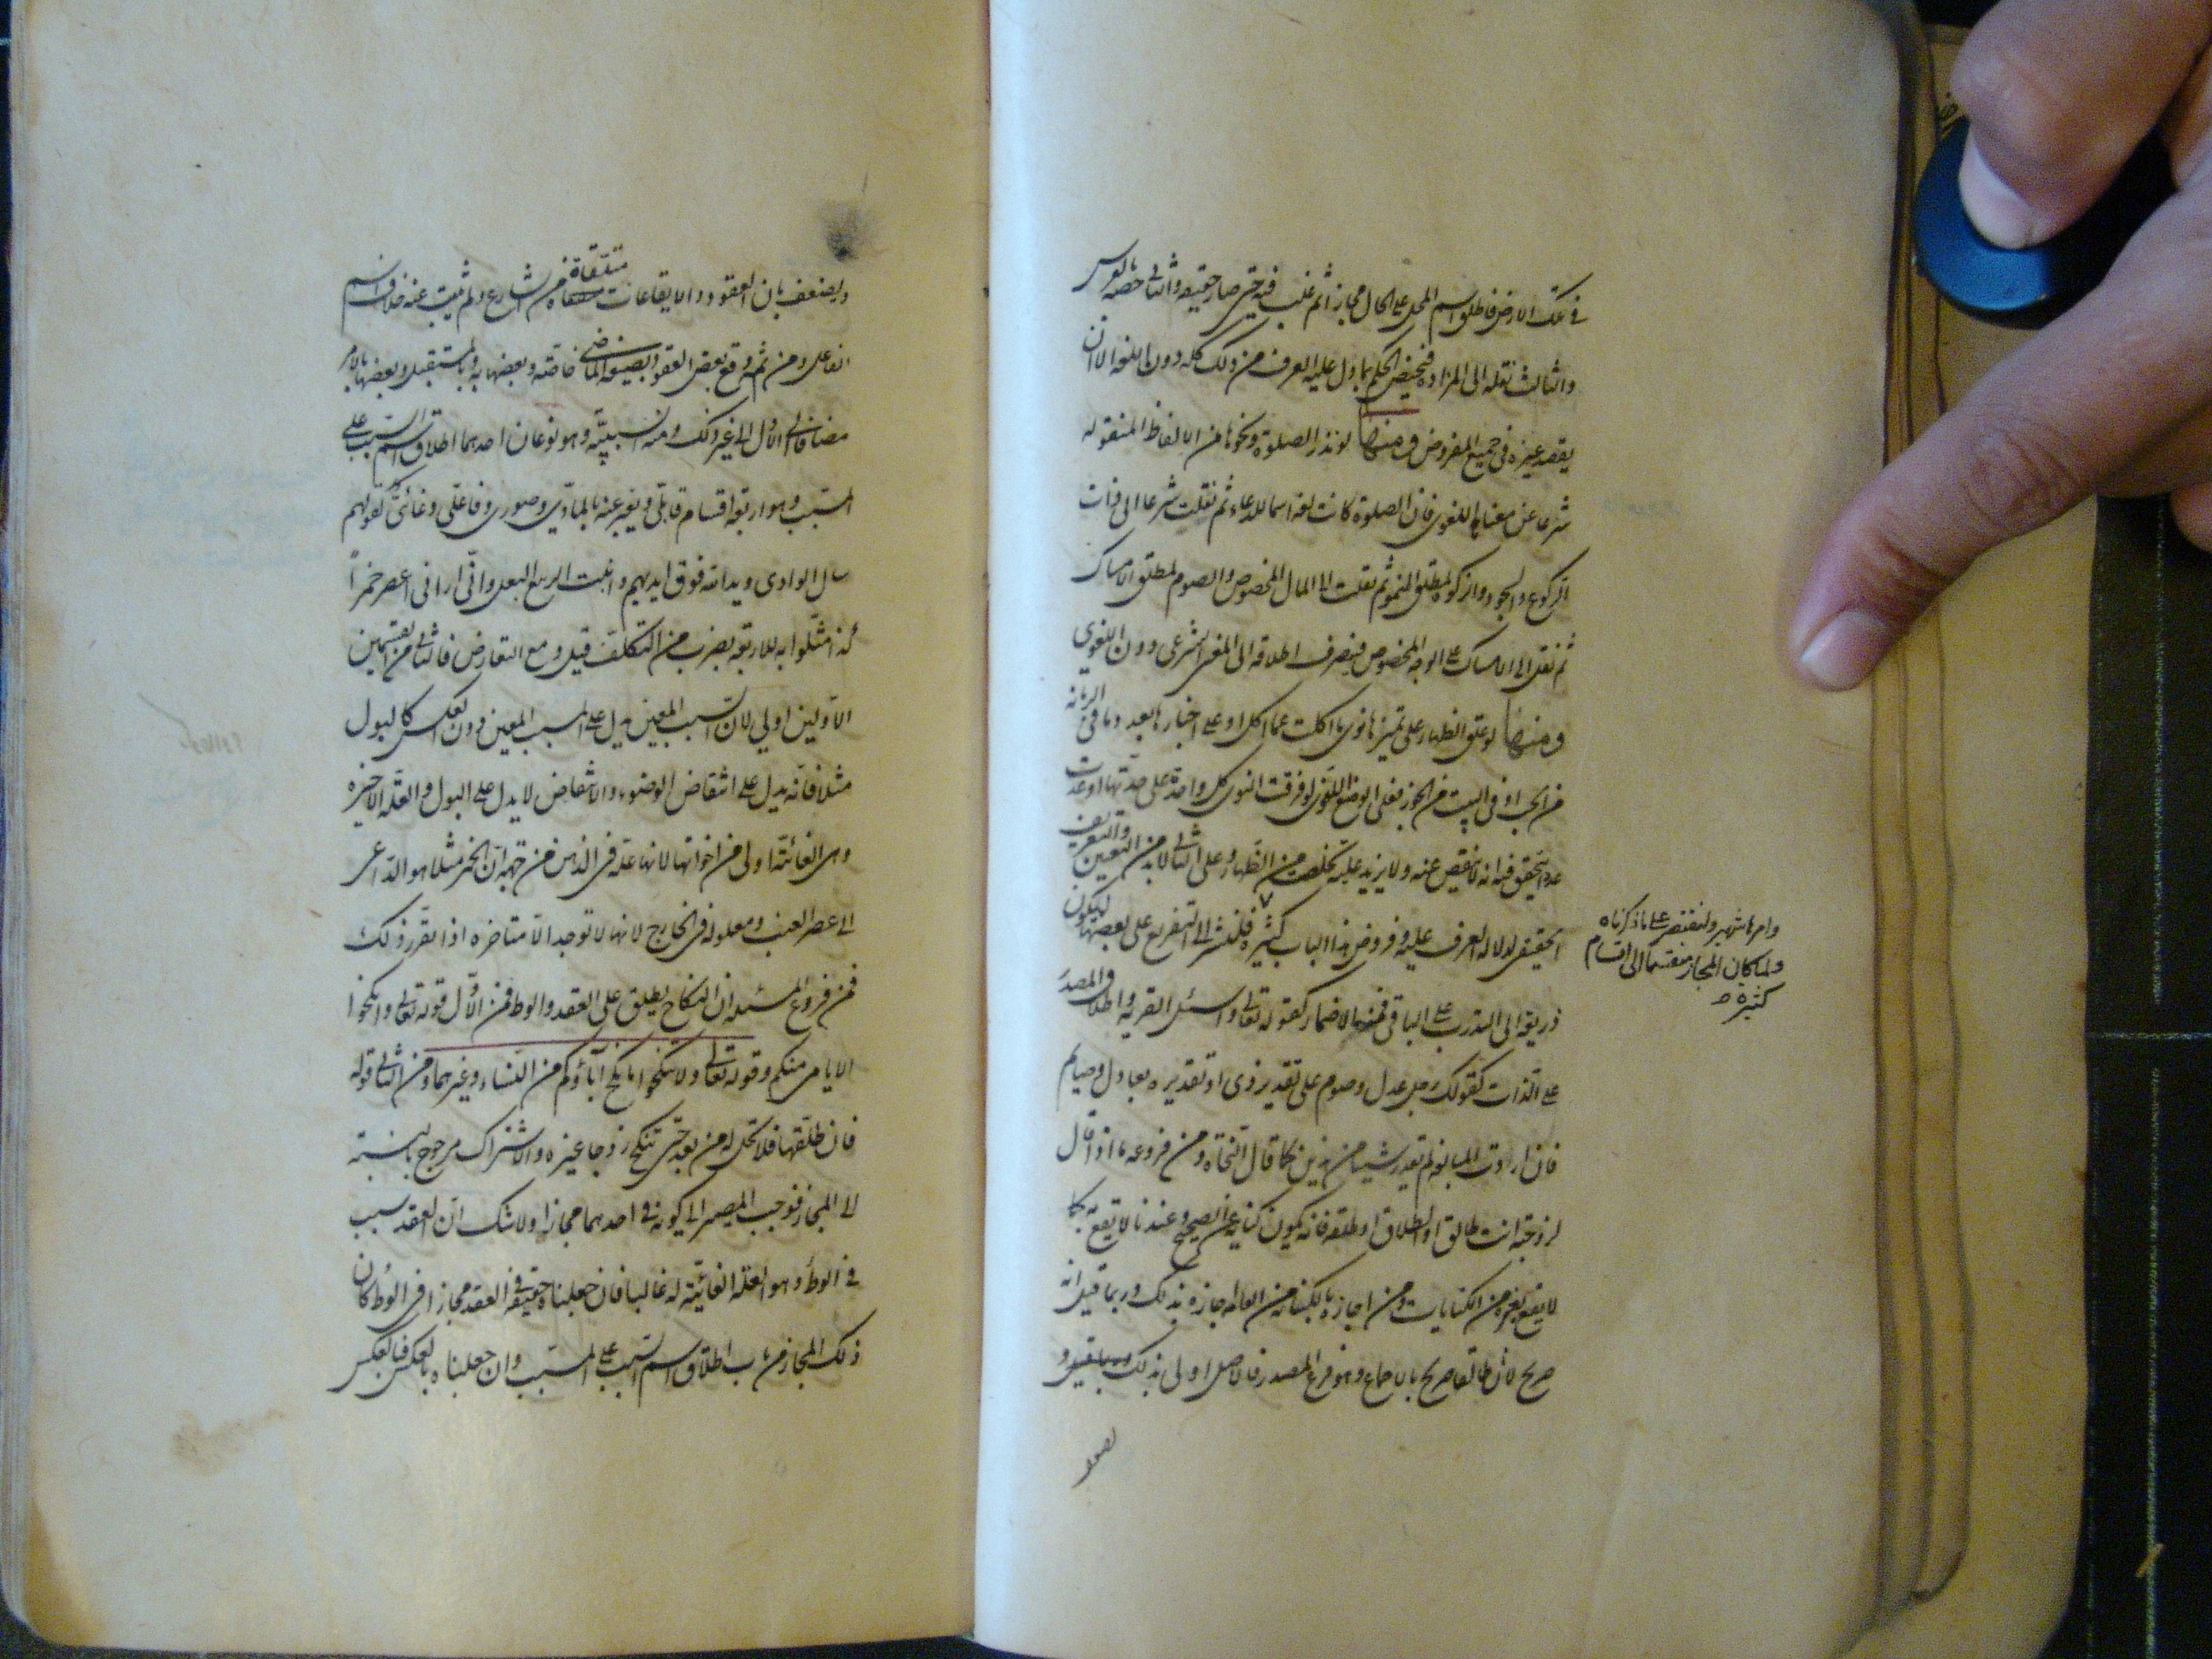 في تلك الارض فاطلق اسم المحل على الحال مجازا ثم غلب فيه حتى صار حقيقة والثاني خصه بالفرس
والثالث نقله الى المزادة فيختص الحكم بما دل عليه العرف من ذلك كله دون اللغة الا ان
يقصد غيره في جميع الفروض ومنها لو نذر الصلوة ونحوها من الالفاظ المنقولة
شرعا عن معناها اللغوي فان الصلوة كانت لغة اسما للدعاء ثم نقلت شرعا الى ذات
الركوع والسجود والزكوة لمطلق النمو ثم نقلت الى المال المخصوص والصوم لمطلق الامساك
ثم نقل الى الامساك على الوجه المخصوص فينصرف اطلاقه الى المعنى الشرعي دون اللغوي
ومنها لو علق الظهار على تمييزها نوى ما اكلت عما اكل او على اخبارها بعدد ما في الرمانة
من الحب او في البيت من الجوز فعلى الوضع اللغوي لو فرقت النوى كل واحدة على حدتها او عدت
عددا يتحقق فيه انه لا ينقص عنه ولا يزيد عليه تخلص من الظهار وعلى الثاني لا بد من التعيين والتعريف
الحقيقي لدلالة العرف عليه وفروض هذا الباب كثيرة فلنشر الى التفريع على بعضها ليكون
وامرها شهير ولنقتصر على ما ذكرناه
ولما كان المجاز منقسما الى اقسام
كثيرة
ذريعة الى التدرب على الباقي فمنها الاضمار كقوله تعالى واسئل القرية واطلاق المصدر
على الذات كقولك رجل عدل وصوم على تقدير ذي او تقديره بعادل وصيام
فان اردت المبالغة لم تقدر شيئا من هذين كما قال النحاة ومن فروعه ما اذا قال
لزوجته انت طالق او الطلاق او طلقة فانه يكون كناية عن الصحيح وعندنا لا يقع به كما
لا يقع بغيره من الكنايات ومن اجازه بالكناية من العامة اجازه بذلك وربما قيل انه
صريح لان طالقا صريح بالاجماع وهو فرع المصدر فالاصل اولى بذلك
ويضعف بان العقود والايقاعات متلقاة من الشارع ولم يثبت عنه خلاف اسم
الفاعل ومن ثم وقع بعض العقود بصيغة الماضي خاصة وبعضها به وبالمستقبل وبعضها بالامر
مضافا الى الاول الى غير ذلك ومنه السببية وهو نوعان احدهما اطلاق اسم السبب على
المسبب وهو اربعة اقسام قابلي ويعبر عنه بالمادي وصوري وفاعلي وغائي كقولهم
سال الوادي ويد الله فوق ايديهم وانبت الربيع البقل واني اراني اعصر خمرا
كذا مثلوا به للاربعة بضرب من التكلف قيل ومع التعارض فالثاني من القسمين
الاولين اولى لان السبب المعين يدل على المسبب المعين دون العكس كالبول
مثلا فانه يدل على انتقاض الوضوء والانتقاض لا يدل على البول والعلة الاخيرة
وهي الغائية اولى من اخواتها لانها علة في الذهن من جهة ان الخمر مثلا هو الداعي
الى عصر العنب ومعلولة في الخارج لانها لا توجد الا متاخرة اذا تقرر ذلك
فمن فروع المسئلة ان النكاح يطلق على العقد والوطء فمن الاول قوله تعالى وانكحوا
الايامى منكم وقوله تعالى ولا تنكحوا ما نكح آباؤكم من النساء وغيرهما ومن الثاني قوله
فان طلقها فلا تحل له من بعد حتى تنكح زوجا غيره والاشتراك مرجوح بالنسبة
الى المجاز فوجب المصير الى كونه في احدهما مجازا ولا شك ان العقد سبب
في الوطء وهو العلة الغائية له غالبا فان جعلناه حقيقة في العقد مجازا في الوطء كان
ذلك المجاز من باب اطلاق اسم السبب على المسبب وان جعلناه بالعكس فبالعكس